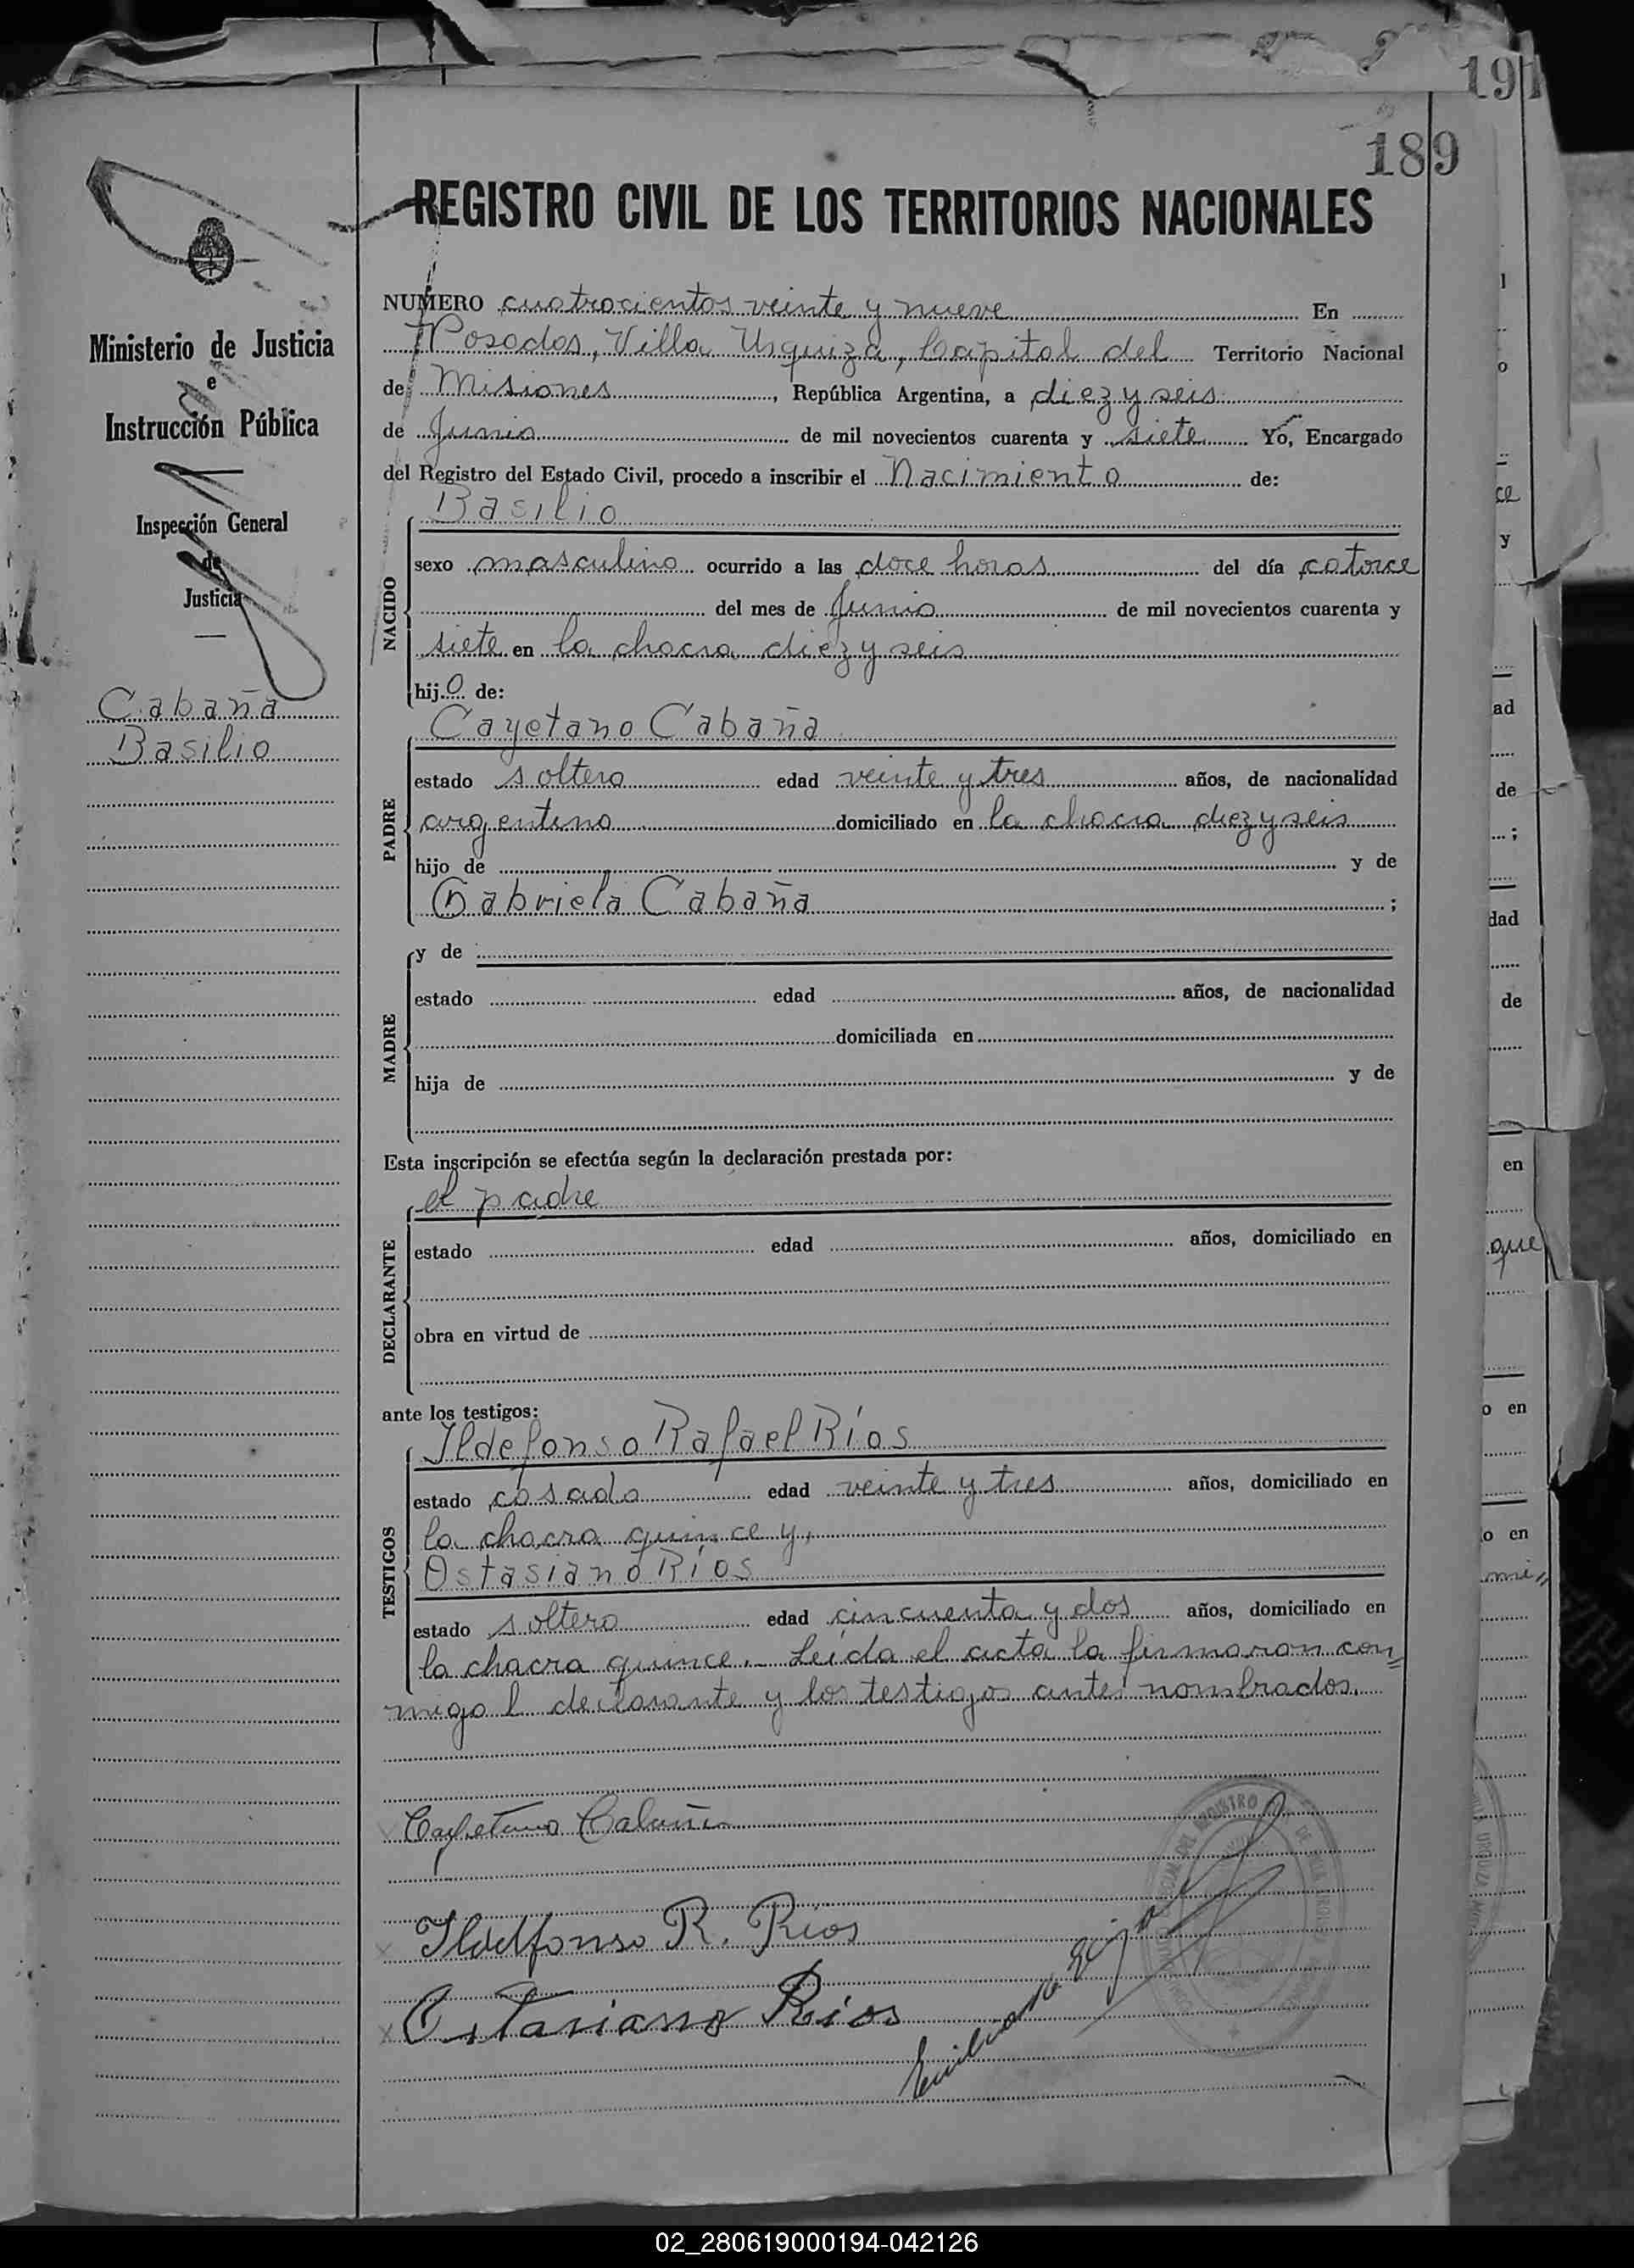 191
189
REGISTRO CIVIL DE LOS TERRITORIOS NACIONALES
Ministerio de Justicia
e
Instrucción Pública
Inspección General
de
Justicia
Cabaña
Basilio
NUMERO cuatrocientos veinte y nueve En
Posadas, Villa Urquiza, Capital del Territorio Nacional
de Misiones, República Argentina, a diez y seis
de Junio de mil novecientos cuarenta y siete Yo, Encargado
del Registro del Estado Civil, procedo a inscribir el Nacimiento de:
Basilio
NACIDO
sexo masculino ocurrido a las doce horas del día catorce
del mes de Junio de mil novecientos cuarenta y
siete en la chacra diez y seis
hijo de:
Cayetano Cabaña
PADRE
estado soltero edad veinte y tres años, de nacionalidad
argentino domiciliado en la chacra diez y seis
hijo de y de
Gabriela Cabaña ;
MADRE
y de
estado edad años, de nacionalidad
domiciliada en
hija de y de
Esta inscripción se efectúa según la declaración prestada por:
el padre
DECLARANTE
estado edad años, domiciliado en
obra en virtud de
ante los testigos:
Ildefonso Rafael Ríos
TESTIGOS
estado casado edad veinte y tres años, domiciliado en
la chacra quince y,
Ostasiano Ríos
estado soltero edad cincuenta y dos años, domiciliado en
la chacra quince.- Leída el acta la firmaron con=
migo l declarante y los testigos antes nombrados.
Cayetano Cabaña
Ildelfonso R. Rios
Ostasiano Ríos
02_280619000194-042126